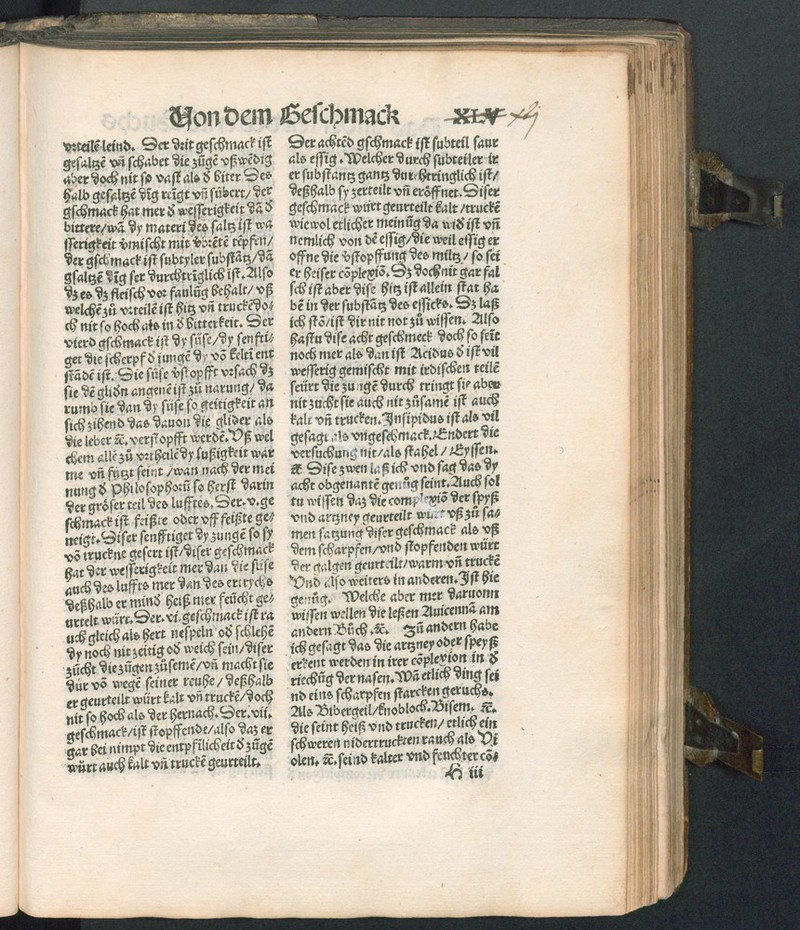 Von dem Geschmack XLV xlj
vrteilē leind. Der drit geschmack ist
gesaltzē vñ schabet die zūgē vßwēdig
aber doch nit so vast als d̄ biter Des
halb gesaltzē dīg reigt vñ sübert/ der
gschmack hat mer d̄ wesserigkeit dā d̄
bittere/wā dy materi des saltz ist wa
sserigkeit vmischt mit vbrētē tēpfen/
der gschmack ist subtyler substātz/dā
gsaltzē dīg ser durchtriglich ist. Also
dz es dz fleisch vor faulūg behalt/ vß
welchē zů vrteilē ist hitz vñ truckē do⸗
ch nit so hoch als in d̄ bitterkeit. Der
vierd gschmack ist dy süse/dy senfti⸗
get die scherpf d̄ jungē dy vō kelti ent
stādē ist. Die süse v̄stopfft vrsach dz
sie dē glidn angenē ist zů narung/ da
rumb sie dan dy süse so geitigkeit an
sich zihend das dauon die glider als
die leber ⁊c. verstopfft werdē. Vß wel
chem allē zů vrtheilē dy süßigkeit war
me vñ fücht seint /wan nach der mei
nung d̄ Philosophorū so herst darin
der gröser teil des lufftes. Der .v. ge
schmack ist feißte oder vff feißte ge⸗
neigt. Diser senfftiget dy zungē so sy
vō truckne gesert ist/diser geschmack
hat der wesserigkeit mer dan die süse
auch des luffts mer dan des ertrychs
deßhalb er mind heiß mer feücht ge⸗
urtelt würt. Der .vi. geschmack ist ra
uch gleich als hert nespeln od̄ schlehē
dy noch nit zeitig od̄ weich sein/diser
zücht die zügen zůsemē/vñ macht sie
dür vō wegē seiner reuhe/ deßhalb
er geurteilt würt kalt vñ truckē/doch
nit so hoch als der hernach. Der .vii.
geschmack/ist stopffende/also daz er
gar bei nimpt die entpfīlicheit d̄ zūgē
würt auch kalt vñ truckē geurteilt.
Der achtēd gschmack ist subteil saur
als essig . Welcher durch subteiler ir
er substantz gantz durcheringlich ist/
deßhalb sy zerteilt vñ eröffnet. Diser
geschmack würt geurteilt kalt /truckē
wiewol etlicher meinūg da wid ist vñ
nemlich von dē essig/die weil essig er
offne die v̄stopffung des miltz/ so sei
er heiser cōplexiō. Dz doch nit gar fal
sch ist aber dise hitz ist allein stat ha
bē in der substātz des essicks. Dz laß
ich stō/ist dir nit not zů wissen. Also
hastu dise acht geschmeck doch so seīt
noch mer als dan ist Acidus d̄ ist vil
wesserig gemischt mit irdischen teilē
seürt die zungē durch tringt sie aber
nit zucht sie auch nit zůsamē ist auch
kalt vñ trucken. Insipidus ist als vil
gesagt als vngeschmack. Endert die
versuchung nit/als stahel / Eyssen.
⁊c Dise zwen laß ich vnd sag das dy
acht obgenantē genůg seint. Auch sol
tu wissen daz die complexiō der spyß
vnd artzney geurteilt würt vß zů sa⸗
men satzung diser geschmack als vß
dem scharpfen/vnd stopfenden würt
der galgen geurteilt/warm vñ truckē
Vnd also weiters in anderen. Ist hie
genůg. Welche aber mer daruonn
wissen wellen die leßen Auicennā am
andern Bůch ⁊c. Zů andern habe
ich gesagt das die artzney oder speyß
erkent werden in irer cōplexion in d̄
riechūg der nasen. Wā etlich ding sei
nd eins scharpfen starcken geruchs.
Als Bibergeil/knobloch. Bisem. ⁊c.
die seint heiß vnd trucken/ etlich ein
schweren nidertruckten rauch als Vi
olen. ⁊c. seind kalter vnd feuchter cō⸗
H iii